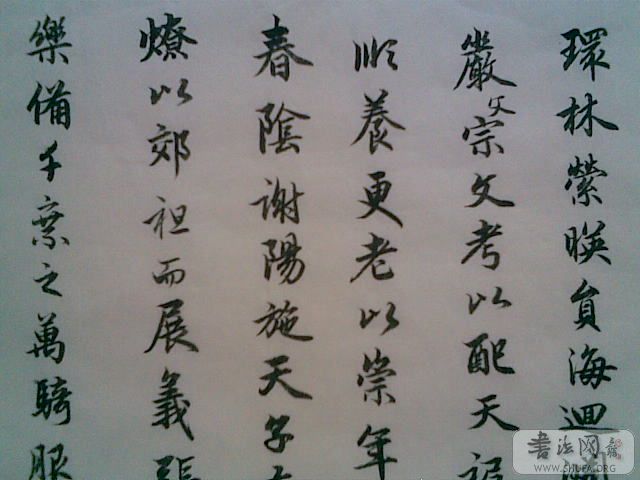 環林縈暎員海迴淵
嚴父宗文考以配天祗
順養更老以崇年
春陰謝陽施天子有
燎以郊祖而展義張
樂備千乘之萬騎服
書法网
WWW.SHUFA.ORG